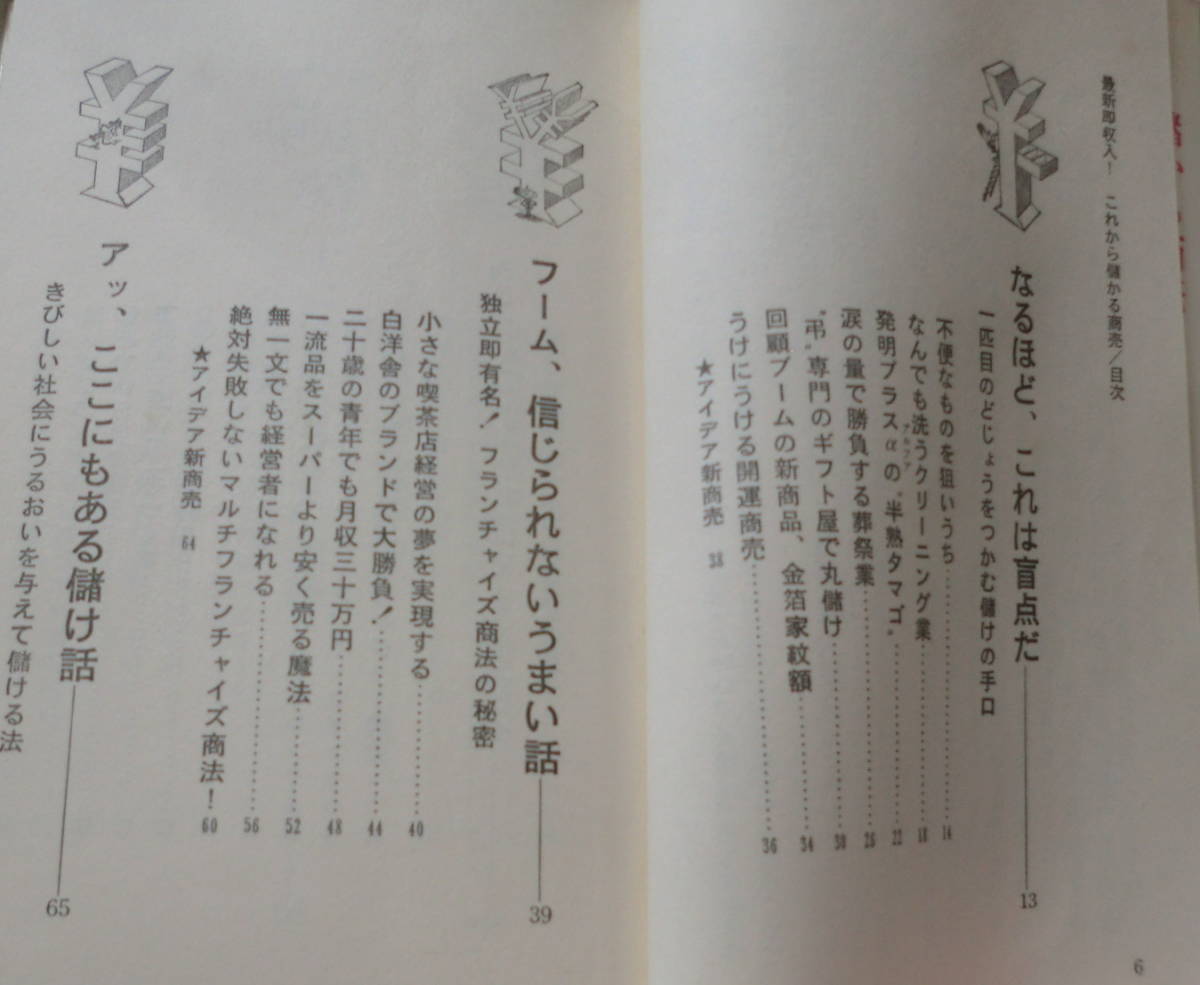 最新即収入！　これから儲かる商売／目次
なるほど、これは盲点だ 13
一匹目のどじょうをつかむ儲けの手口
不便なものを狙いうち 14
なんでも洗うクリーニング業 18
発明プラスαの〝半熟タマゴ〟 22
アルファ
涙の量で勝負する葬祭業 26
〝弔〟専門のギフト屋で丸儲け 30
回顧ブームの新商品、金箔家紋額 34
うけにうける開運商売 36
★アイデア新商売 38
6
フーム、信じられないうまい話 39
独立即有名！フランチャイズ商法の秘密
小さな喫茶店経営の夢を実現する 40
白洋舎のブランドで大勝負！ 44
二十歳の青年でも月収三十万円 48
一流品をスーパーより安く売る魔法 52
無一文でも経営者になれる 56
絶対失敗しないマルチフランチャイズ商法！ 60
★アイデア新商売 64
アッ、ここにもある儲け話 65
きびしい社会にうるおいを与えて儲ける法